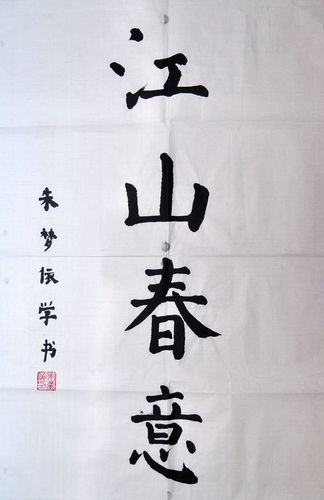 江山春意
朱梦依学书